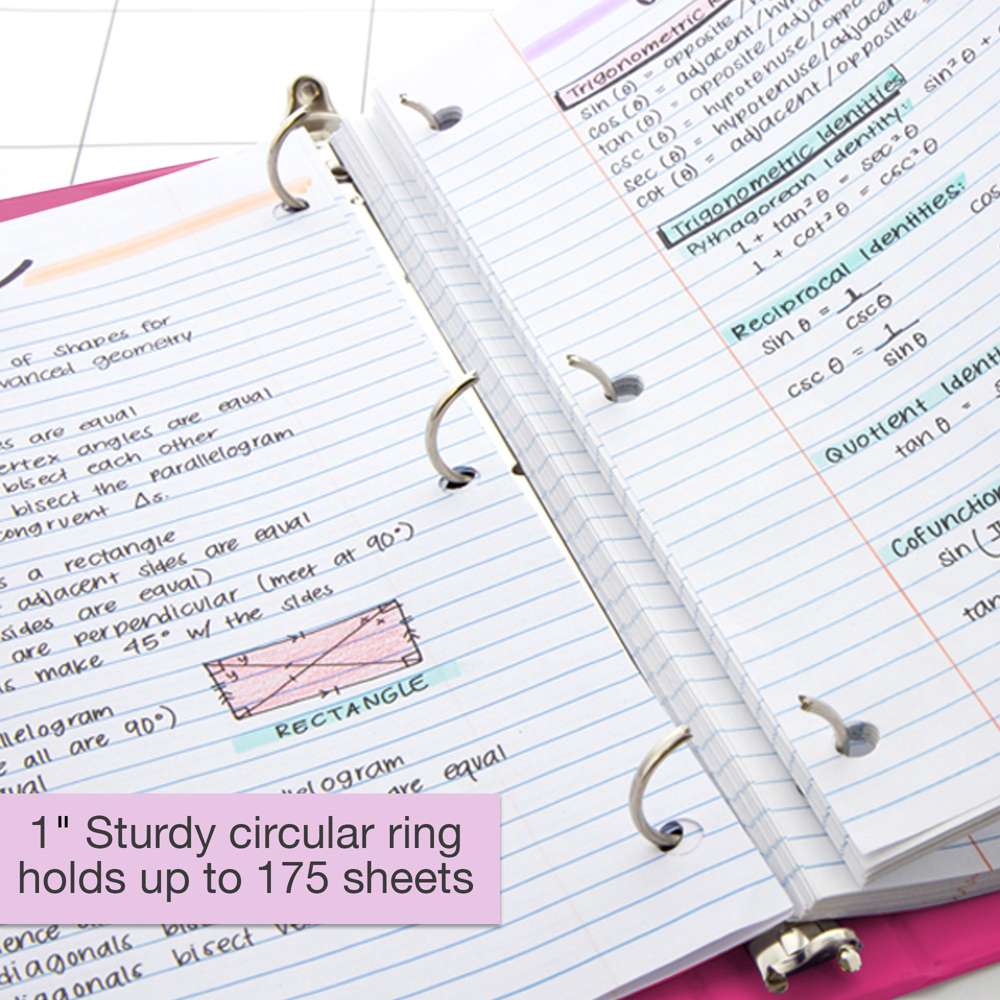 of shapes for
advanced geometry
are equal
vertex angles are equal
bisect each other
bisect the parallelogram
congruent Δs.
s a rectangle
adjacent sides are equal
sides are equal)
are perpendicular (meet at 90°)
make 45° w/ the sides
x
x
y
y
RECTANGLE
all are 90°)
are equal
1" Sturdy circular ring
holds up to 175 sheets
diagonals
diagonals bisect
Trigonometric
sin (θ) = opposite /
cos (θ) = adjacent/
tan (θ) = opposite/adjacent
csc (θ) = hypotenuse/opposite
sec (θ) = hypotenuse/adjacent
cot (θ) = adjacent/opposite
Trigonometric Identities
Pythagorean Identity:
sin²θ +
1 + tan²θ = sec²θ
1 + cot²θ = csc²θ
Reciprocal Identities:
sin θ = 1
cscθ
cos
csc θ = 1
sinθ
Quotient
tan θ =
Cofunction
sin (
tan